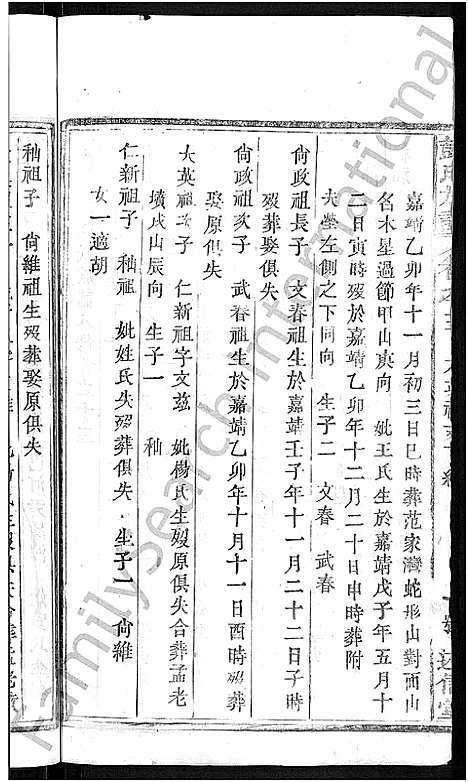 嘉靖乙卯年十一月初三日巳時葬范家灣蛇形山對面山
名木星過節甲山庚向 妣王氏生於嘉靖戊子年五月十
二日寅時歿於嘉靖乙卯年十二月二十日申時葬附
夫塋左側之下同向 生子二 文春 武春
尙政祖長子 文春祖生於嘉靖壬子年一月二十二日子時
歿葬娶原俱失
尙政祖次子 武春祖生於嘉靖乙卯年十月十一日酉時歿葬
娶原俱失
大英祖次子 仁新祖字文茲 妣楊氏生歿原俱失合葬孟老
墳戌山辰向 生子一 秈
仁新祖子 秈祖 妣姓氏失歿葬俱失 生子一 尙維
女一適胡
秈祖子 尙維祖生歿葬娶原俱失
FamilySearch International